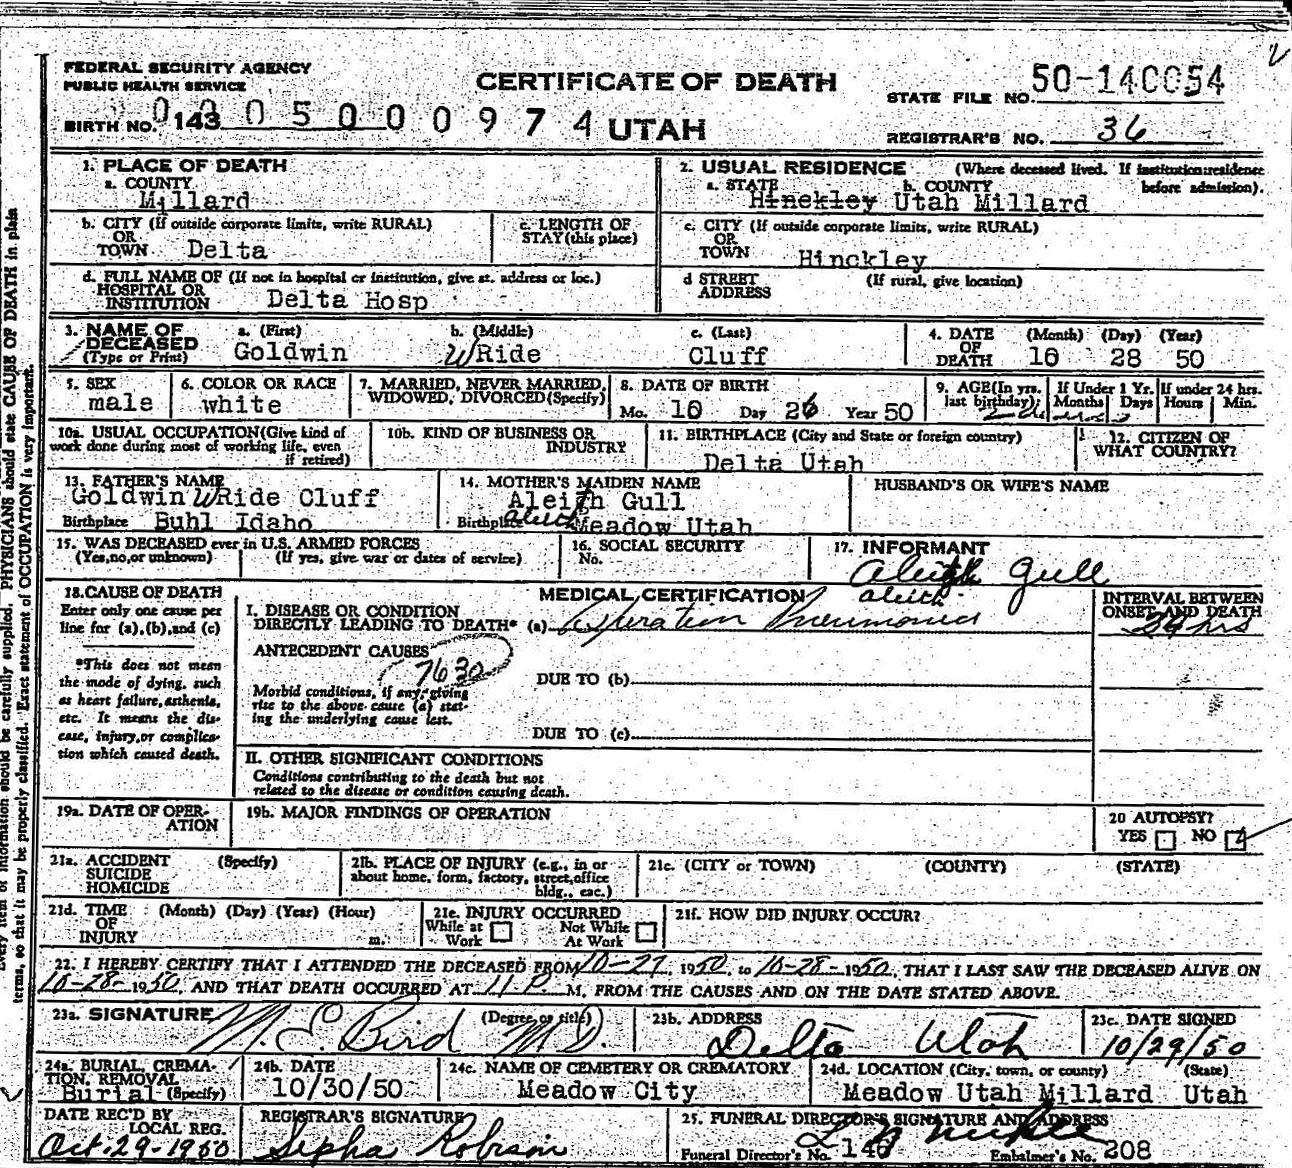 FEDERAL SECURITY AGENCY
PUBLIC HEALTH SERVICE
CERTIFICATE OF DEATH
STATE FILE NO. 50-140054
BIRTH NO. 143 0 5 0 0 0 0 9 7 4 UTAH
REGISTRAR'S NO. 36
1. PLACE OF DEATH
a. COUNTY
Millard
2. USUAL RESIDENCE (Where deceased lived. If institution:residence before admission).
a. STATE b. COUNTY
Hinckley Utah Millard
b. CITY (If outside corporate limits, write RURAL)
OR
TOWN Delta
c. LENGTH OF
STAY (this place)
c. CITY (If outside corporate limits, write RURAL)
OR
TOWN Hinckley
d. FULL NAME OF (If not in hospital or institution, give st. address or loc.)
HOSPITAL OR
INSTITUTION Delta Hosp
d STREET (If rural, give location)
ADDRESS
3. NAME OF DECEASED
(Type or Print)
a. (First)
Goldwin
b. (Middle)
WRide
c. (Last)
Cluff
4. DATE OF DEATH (Month) (Day) (Year)
10 28 50
5. SEX
male
6. COLOR OR RACE
white
7. MARRIED, NEVER MARRIED,
WIDOWED, DIVORCED (Specify)
8. DATE OF BIRTH
Mo. 10 Day 26 Year 50
9. AGE (In yrs. last birthday)
If Under 1 Yr. Months Days
If under 24 hrs. Hours Min.
10a. USUAL OCCUPATION (Give kind of
work done during most of working life, even
if retired)
10b. KIND OF BUSINESS OR
INDUSTRY
11. BIRTHPLACE (City and State or foreign country)
Delta Utah
12. CITIZEN OF
WHAT COUNTRY?
13. FATHER'S NAME
Goldwin WRide Cluff
Birthplace Buhl Idaho
14. MOTHER'S MAIDEN NAME
Aleith Gull
Birthplace Aleith Meadow Utah
HUSBAND'S OR WIFE'S NAME
15. WAS DECEASED ever in U.S. ARMED FORCES
(Yes,no,or unknown) (If yes, give war or dates of service)
16. SOCIAL SECURITY
No.
17. INFORMANT
Aleith Gull
Aleith
18. CAUSE OF DEATH
Enter only one cause per
line for (a),(b),and (c)
*This does not mean
the mode of dying, such
as heart failure, asthenia,
etc. It means the dis-
ease, injury,or complica-
tion which caused death.
MEDICAL CERTIFICATION
I. DISEASE OR CONDITION
DIRECTLY LEADING TO DEATH* (a) Aspiration Pneumonia
INTERVAL BETWEEN
ONSET AND DEATH
24 hrs
ANTECEDENT CAUSES
7630
Morbid conditions, if any, giving
rise to the above cause (a) stat-
ing the underlying cause last.
DUE TO (b)
DUE TO (c)
II. OTHER SIGNIFICANT CONDITIONS
Conditions contributing to the death but not
related to the disease or condition causing death.
19a. DATE OF OPER-
ATION
19b. MAJOR FINDINGS OF OPERATION
20 AUTOPSY?
YES NO
21a. ACCIDENT (Specify)
SUICIDE
HOMICIDE
21b. PLACE OF INJURY (e.g., in or
about home, form, factory, street,office
bldg., etc.)
21c. (CITY or TOWN) (COUNTY) (STATE)
21d. TIME (Month) (Day) (Year) (Hour)
OF
INJURY m.
21e. INJURY OCCURRED
While at Work Not While At Work
21f. HOW DID INJURY OCCUR?
22. I HEREBY CERTIFY THAT I ATTENDED THE DECEASED FROM 10-27, 1950, to 10-28-1950, THAT I LAST SAW THE DECEASED ALIVE ON
10-28-1950, AND THAT DEATH OCCURRED AT 11-P M, FROM THE CAUSES AND ON THE DATE STATED ABOVE.
23a. SIGNATURE (Degree or title)
M. E. Bird M.D.
23b. ADDRESS
Delta Utah
23c. DATE SIGNED
10/29/50
24a. BURIAL, CREMA-
TION, REMOVAL
Burial (Specify)
24b. DATE
10/30/50
24c. NAME OF CEMETERY OR CREMATORY
Meadow City
24d. LOCATION (City, town, or county) (State)
Meadow Utah Millard Utah
DATE REC'D BY
LOCAL REG.
Oct-29-1950
REGISTRAR'S SIGNATURE
Sepha Robison
25. FUNERAL DIRECTOR'S SIGNATURE AND ADDRESS
Funeral Director's No. 140 Embalmer's No. 208
Every item of information should be carefully supplied. PHYSICIANS should state CAUSE OF DEATH in plain
terms, so that it may be properly classified. Exact statement of OCCUPATION is very important.